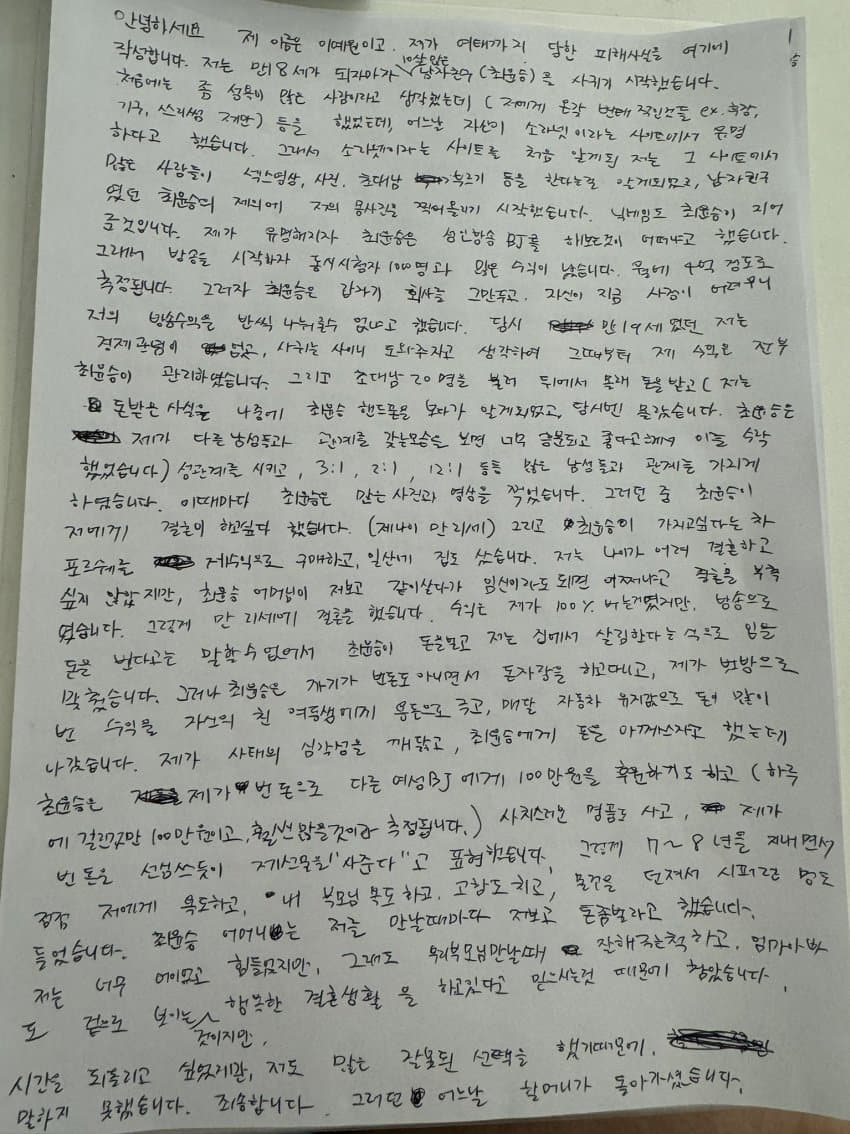 1
안녕하세요 제 이름은 이예원이고. 제가 여태까지 당한 피해사실을 여기에
작성합니다. 저는 만18세가 되자마자 10살많은 남자친구(최윤승)를 사귀기 시작했습니다.
처음에는 좀 성욕이 많은 사람이라고 생각했는데 (저에게 온갖 변태적인것들 ex.
기구, 쓰리썸 제안) 등을 했었는데, 어느날 자신이 소라넷이라는 사이트에서 유명
하다고 했습니다. 그래서 소라넷이라는 사이트를 처음 알게된 저는 그 사이트에서
많은 사람들이 섹스영상, 사진, 초대남 부르기 등을 한다는걸 알게되었고, 남자친구
였던 최윤승의 제의에 저의 몸사진을 찍어올리기 시작했습니다. 닉네임도 최윤승이 지어
준것입니다. 제가 유명해지자 최윤승은 성인방송 BJ를 해보는것이 어떠냐고 했습니다.
그래서 방송을 시작하자 동시시청자 100명과 많은 수익이 났습니다. 월에 4억 정도로
측정됩니다. 그러자 최윤승은 갑자기 회사를 그만두고. 자신이 지금 사정이 어려우니
저의 방송수익을 반씩 나눠줄수 없냐고 했습니다. 당시 만19세였던 저는
경제관념이 없고, 사귀는 사이니 도와주자고 생각하여 그때부터 제 수익은 전부
최윤승이 관리하였습니다. 그리고 초대남 20명을 불러 뒤에서 몰래 돈을 받고 (저는
돈받은 사실을 나중에 최윤승 핸드폰을 보다가 알게되었고, 당시엔 몰랐습니다. 최윤승은
제가 다른 남성들과 관계를 갖는모습을 보면 너무 흥분되고 좋다고해서 이를 수락
했었습니다) 성관계를 시키고, 3:1, 2:1, 12:1 등등 많은 남성들과 관계를 가지게
하였습니다. 이때마다 최윤승은 많은 사진과 영상을 찍었습니다. 그러던 중 최윤승이
저에게 결혼이 하고싶다 했습니다. (제나이 만21세) 그리고 최윤승이 가지고싶다는 차
포르쉐를 제수익으로 구매하고, 일산에 집도 샀습니다. 저는 나이가 어려 결혼하고
싶지 않았지만, 최윤승 어머님이 저보고 같이살다가 임신이라도 되면 어쩌냐고 결혼을 부추
였습니다. 그렇게 만 21세에 결혼을 했습니다. 수익은 제가 100% 버는거였지만. 방송으로
돈을 번다고는 말할 수 없어서 최윤승이 돈을벌고 저는 집에서 살림한다는 식으로 입을
맞췄습니다. 그러나 최윤승은 자기가 번돈도 아니면서 돈자랑을 하고다니고, 제가 벗방으로
번 수익을 자신의 친 여동생에게 용돈으로 주고, 매달 자동차 유지값으로 돈이 많이
나갔습니다. 제가 사태의 심각성을 깨닫고, 최윤승에게 돈을 아껴쓰자고 했는데
최윤승은 제가 번 돈으로 다른 여성BJ에게 100만원을 후원하기도 하고 (하루
에 걸린것만 100만원이고, 훨씬 많을것이라 측정됩니다.) 사치스러운 명품도 사고, 제가
번 돈을 선심쓰듯이 제선물을 "사준다"고 표현했습니다. 그렇게 7~8년을 지내면서
점점 저에게 욕도하고, 내 부모님 욕도 하고. 고함도 치고, 물건을 던져서 시퍼런 멍도
들었습니다. 최윤승 어머니는 저를 만날때마다 저보고 돈좀벌라고 했습니다.
저는 너무 어이없고 힘들었지만, 그래도 우리부모님만날때 잘해주는척하고. 엄마아빠
도 겉으로 보이는것이지만, 행복한 결혼생활을 하고있다고 믿으시는것 때문에 참았습니다.
시간을 되돌리고 싶었지만, 저도 많은 잘못된 선택을 했기때문에.
말하지 못했습니다. 죄송합니다. 그러던 어느날 할머니가 돌아가셨습니다.